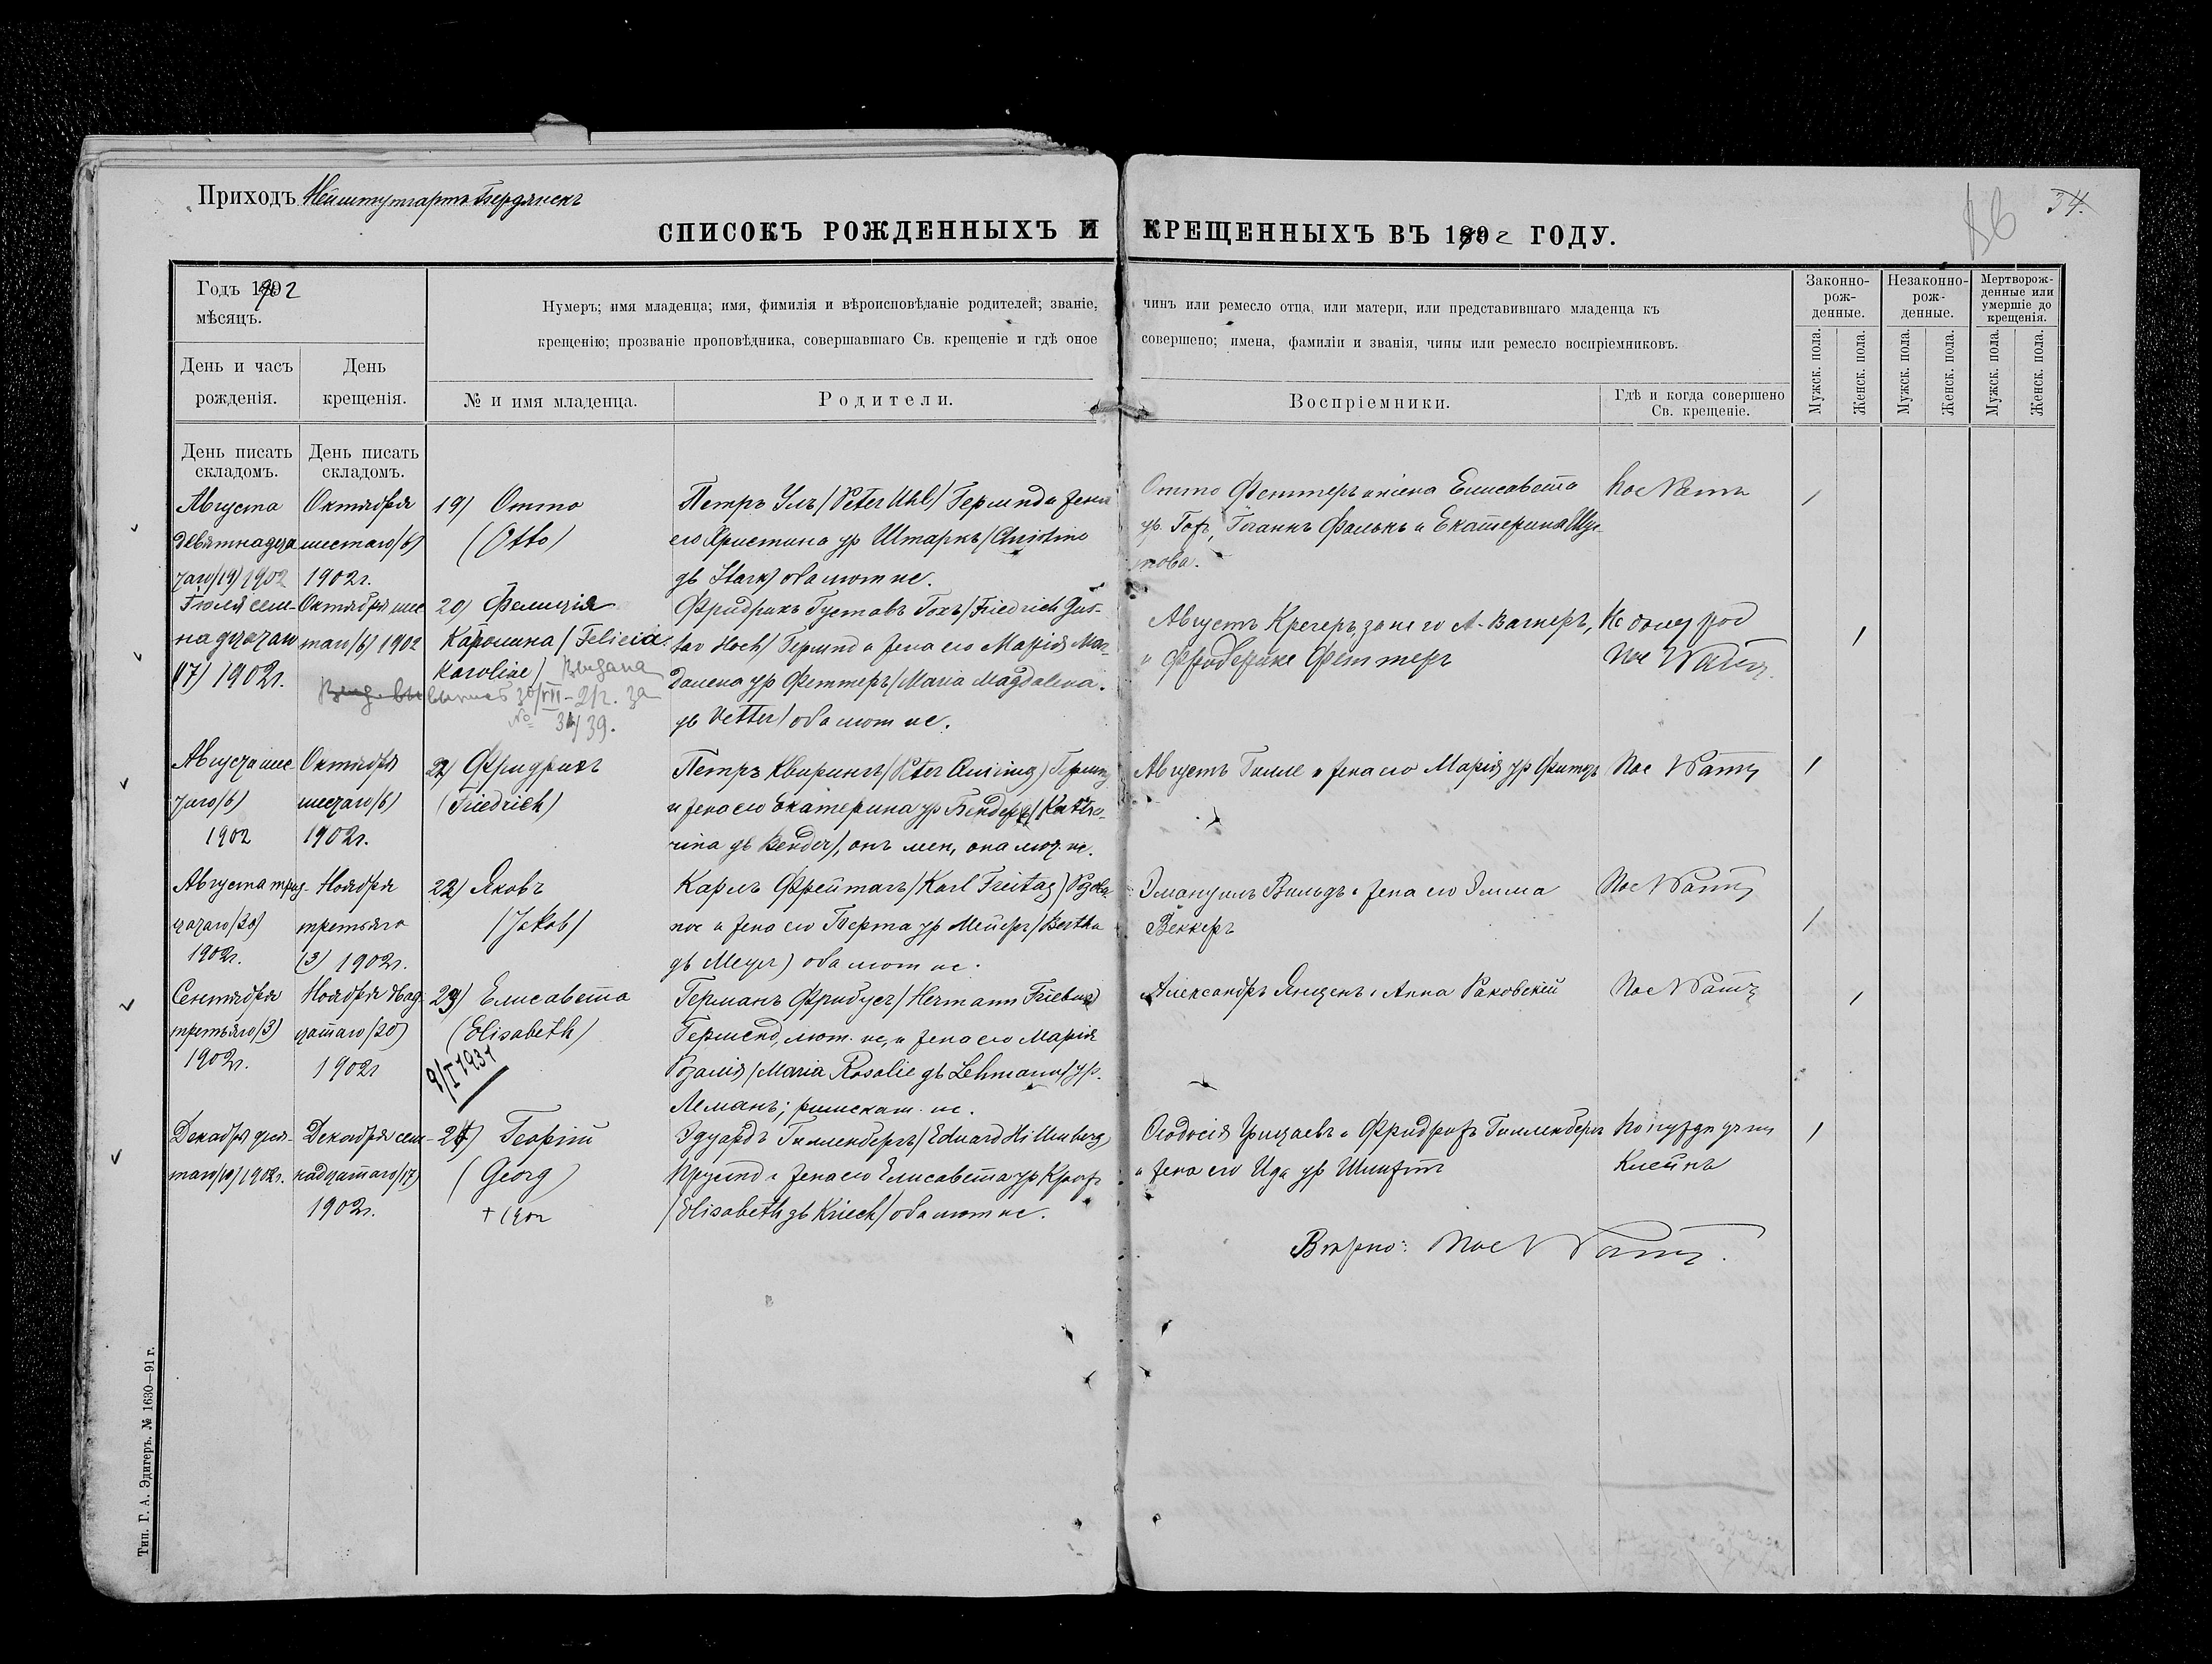 Приходъ Нейштутгартъ Бердянскъ
34.
СПИСОКЪ РОЖДЕННЫХЪ И КРЕЩЕННЫХЪ ВЪ 1902 ГОДУ.
Годъ 1902
мѣсяцъ.
День и часъ
рожденія.
День
крещенія.
Нумеръ; имя младенца; имя, фимилія и вѣроисповѣданіе родителей; званіе, чинъ или ремесло отца, или матери, или представившаго младенца къ
крещенію; прозваніе проповѣдника, совершавшаго Св. крещеніе и гдѣ оное совершено; имена, фамиліи и званія, чины или ремесло воспріемниковъ.
№ и имя младенца.
Родители.
Воспріемники.
Гдѣ и когда совершено
Св. крещеніе.
Законно-
рож-
денные.
Незаконно-
рож-
денные.
Мертворож-
денные или
умершіе до
крещенія.
Мужск. пола.
Женск. пола.
Мужск. пола.
Женск. пола.
Мужск. пола.
Женск. пола.
День писать
складомъ.
День писать
складомъ.
Августа
девятнадца
таго (19) 1902
Октября
шестаго (6)
1902г.
19) Отто
(Otto)
Петръ Улъ (Peter Uhl) Герлинд и жена
его Христина ур Штаркъ (Christine
gb Stark) оба лют ис.
Отто Феттеръ и жена Елисавета
ур. Гофъ, Іоганнъ Фалькъ и Екатерина
Іюля сем-
надцатаго
(17) 1902г.
Октября шес
таго (6) 1902
20) Фелиція
Каролина (Felicia
Karoline) Выдана
30/VII-21г. за
№ 34/39.
Фридрихъ Густавъ Гохъ (Friedrich Gus-
tav Hoch) Герлинд и жена его Марія Маг-
далена ур Феттеръ (Maria Magdalena
gb Vetter) оба лют ис.
Августъ Кречеръ, за него А. Вагнеръ,
и Фридерике Феттеръ
Августа шес-
таго (6)
1902
Октября
шестаго (6)
1902г.
21) Фридрихъ
(Friedrich)
Петръ Квирингъ (Peter Quiring)
и жена его Екатерина ур Бендеръ (Kathe-
rina gb Bender), онъ мен, она лют. ис.
Августъ Гилле и жена его Марія ур
Августа трид-
цатаго (30)
1902г.
Ноября
третьяго
(3) 1902г.
22) Яковъ
(Jakob)
Карлъ Фрейтагъ (Karl Freitag)
и жена его Берта ур Мейеръ (Bertha
gb Meyer) оба лют ис.
Эмануилъ Вильдъ и жена его Эмма
Веккеръ
Сентября
третьяго (3)
1902г.
Ноября двад-
цатаго (20)
1902г
23) Елисавета
(Elisabeth)
9/I 1931
Германъ Фрибусъ (Hermann Friebus)
лют. ис, и жена его Марія
Розалія (Maria Rosalie gb Lehmann) ур.
Леманъ; римскат. ис.
Александръ Янценъ и Анна Раковскій
Декабря деся-
таго (10) 1902г.
Декабря сем-
надцатаго (17)
1902г.
24) Георгій
(Georg)
+ 1902
Эдуардъ Гилленбергъ (Eduard Hillenberg)
и жена его Елисавета ур
(Elisabeth gb Kriech) оба лют ис.
Феодосія и Фридрихъ Гилленбергъ
и жена его Ида ур
Клейнъ
Вѣрно:
Тип. Г. А. Эдигеръ. № 1630—91 г.